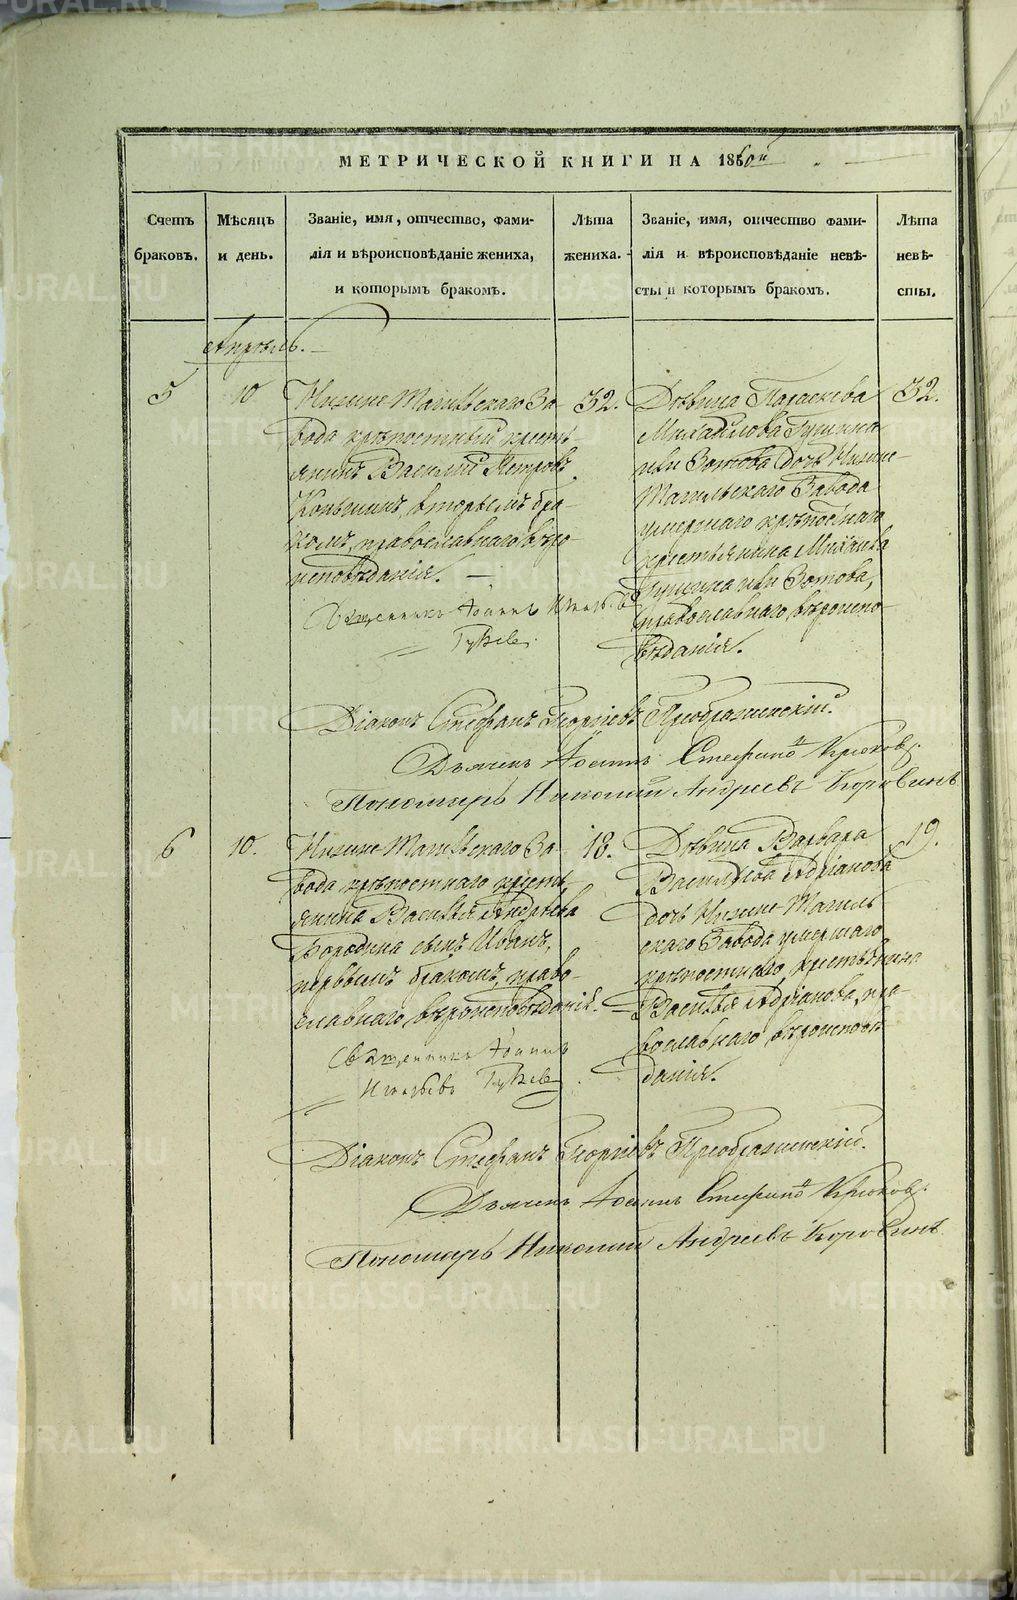 МЕТРИЧЕСКОЙ КНИГИ НА 1860й
Счетъ браковъ.
Мѣсяцъ и день.
Званіе, имя, отчество, фами-
лія и вѣроисповѣданіе жениха,
и которымъ бракомъ.
Лѣта жениха.
Званіе, имя, отчество фами-
лія и вѣроисповѣданіе невѣ-
сты и которымъ бракомъ.
Лѣта невѣ-
сты.
Апрѣль.
5
10
Нижне Тагильскаго За-
вода крѣпостный кресть-
янинъ Василій Петровъ
вторымъ бра-
комъ, православнаго вѣро-
исповѣданія.
32.
Дѣвица Параскева
Михайлова Гущина
или Зотова дочь Нижне-
Тагильскаго Завода
умершаго крѣпостнаго
крестьянина Михаила
Гущина или Зотова,
православнаго вѣроиспо-
вѣданія.
32.
Священникъ Іоаннъ
Діаконъ Стефанъ Георгіевъ Преображенскій.
Дьячекъ Іоаннъ Стефановъ Крюковъ.
Пономарь Николай Андреевъ Коровинъ
6
10.
Нижне Тагильскаго За-
вода крѣпостнаго кресть-
янина Василья Андреева
Бородина сынъ Иванъ,
первымъ бракомъ, право-
славнаго вѣроисповѣданія.
18.
Дѣвица Варвара
Васильева Адріанова
дочь Нижне-Тагиль
скаго Завода умершаго
крѣпостнаго крестьянина
Василья Адріанова, пра-
вославнаго вѣроисповѣ
данія.
19.
Священникъ Іоаннъ
Діаконъ Стефанъ Георгіевъ Преображенскій.
Дьячекъ Іоаннъ Стефановъ Крюковъ.
Пономарь Николай Андреевъ Коровинъ
METRIKI.GASO-URAL.RU